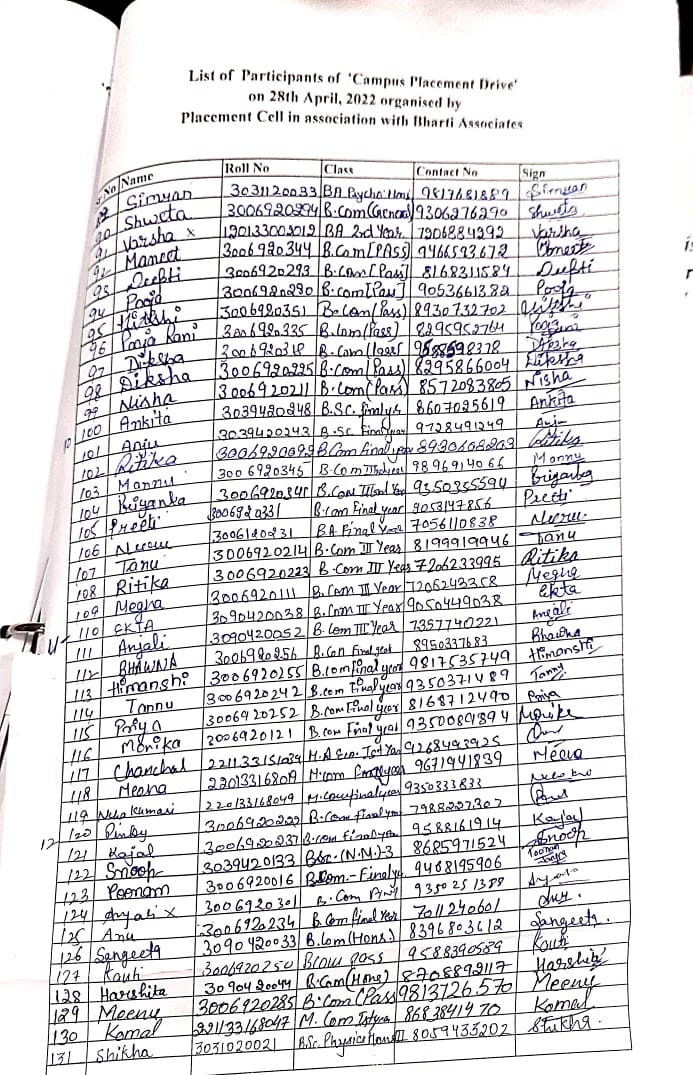 List of Participants of 'Campus Placement Drive'
on 28th April, 2022 organised by
Placement Cell in association with Bharti Associates
No Name Roll No Class Contact No Sign
Simran 3031120033 BA Psycho: Hons 9817681889 Simran
90 Shweta 3006920294 B.Com(General) 9306276290 Shweta
91 Varsha x 120133002012 BA 2nd Year 7206884292 Varsha
92 Maneet 3006920344 B.Com[PASS] 9466593672
93 Deepti 3006920293 B.Com[Pass] 8168311584 Deepti
94 Pooja 3006920290 B.com[Pass] 9053661382 Pooja
95 3006920351 B.Com(Pass) 8930732702
96 Pooja Rani 3006920335 B.Com(Pass) 8295952764
97 Diksha 3006920318 B.Com(Pass) 9588598378 Diksha
98 Diksha 3006920225 B.Com(Pass) 8295866004 Diksha
99 Nisha 3006920211 B.Com(Pass) 8572083805 Nisha
100 Ankita 3039420248 B.SC. final yr 8607025619 Ankita
101 Anju 3039420243 B.SC final year 9728491249 Anju
102 Ritika B.Com final year Ritika
103 Mannu 3006920345 B.Com Third year 9896914066 Mannu
104 Priyanka B.Com Third Year 9350355594 Priyanka
105 Preeti 3006920331 B.Com Final year 9053147856 Preeti
106 Neeru 3006120231 BA Final Year 7056110838 Neeru
107 Tanu 3006920214 B.Com III Year 8199919946 Tanu
108 Ritika 3006920223 B.Com III Year 7206233995 Ritika
109 Megha 3006920111 B.Com III Year 7206243358 Megha
110 EKTA 3090420038 B.Com III Year 9050449038 Ekta
111 Anjali 3090420052 B.Com III Year 7357740221 Anjali
112 BHAWNA 3006920256 B.Com Final year 8950337683 Bhawna
113 Himanshi 3006920255 B.com final year 9817535749 Himanshi
114 Tannu 3006920242 B.com Final year 9350371489 Tannu
115 Priya 3006920252 B.com Final year 8168712490 Priya
116 Monika 3006920121 B.com Final year 9350081894 Monika
117 Chanchal 221133151034 9268493925
118 Meena 220133168019 M.com 9671941839 Meena
119 Neha Kumari 220133168049 M.com final year 9350333833
120 Pinky 3006920222 B.Com final year 7988227307
121 Kajal 3006920237 B.com final year 9588161914 Kajal
122 Snoop 3039420133 BSc-(N.M.)-3 8685971524 Snoop
123 Poonam 3006920016 B.Com-Final yr 9468195906 Poonam
124 x 3006920301 B.Com 9350251388
125 Anu 3006920234 B.Com final Year 7011240601 Anu.
126 Sangeeta 3090420033 B.Com(Hons) 8396803612 Sangeeta.
127 3006920250 Bcom pass 9588390589
128 Harshita 3090420044 B.Com(Hons) 8708892117 Harshita
129 Meenu 3006920285 B.Com(Pass 9813726570 Meenu
130 Komal 221133168047 M.Com 8683841970 Komal
131 Shikha 3031020021 B.Sc. Physics Hons III 8059433202 Shikha.